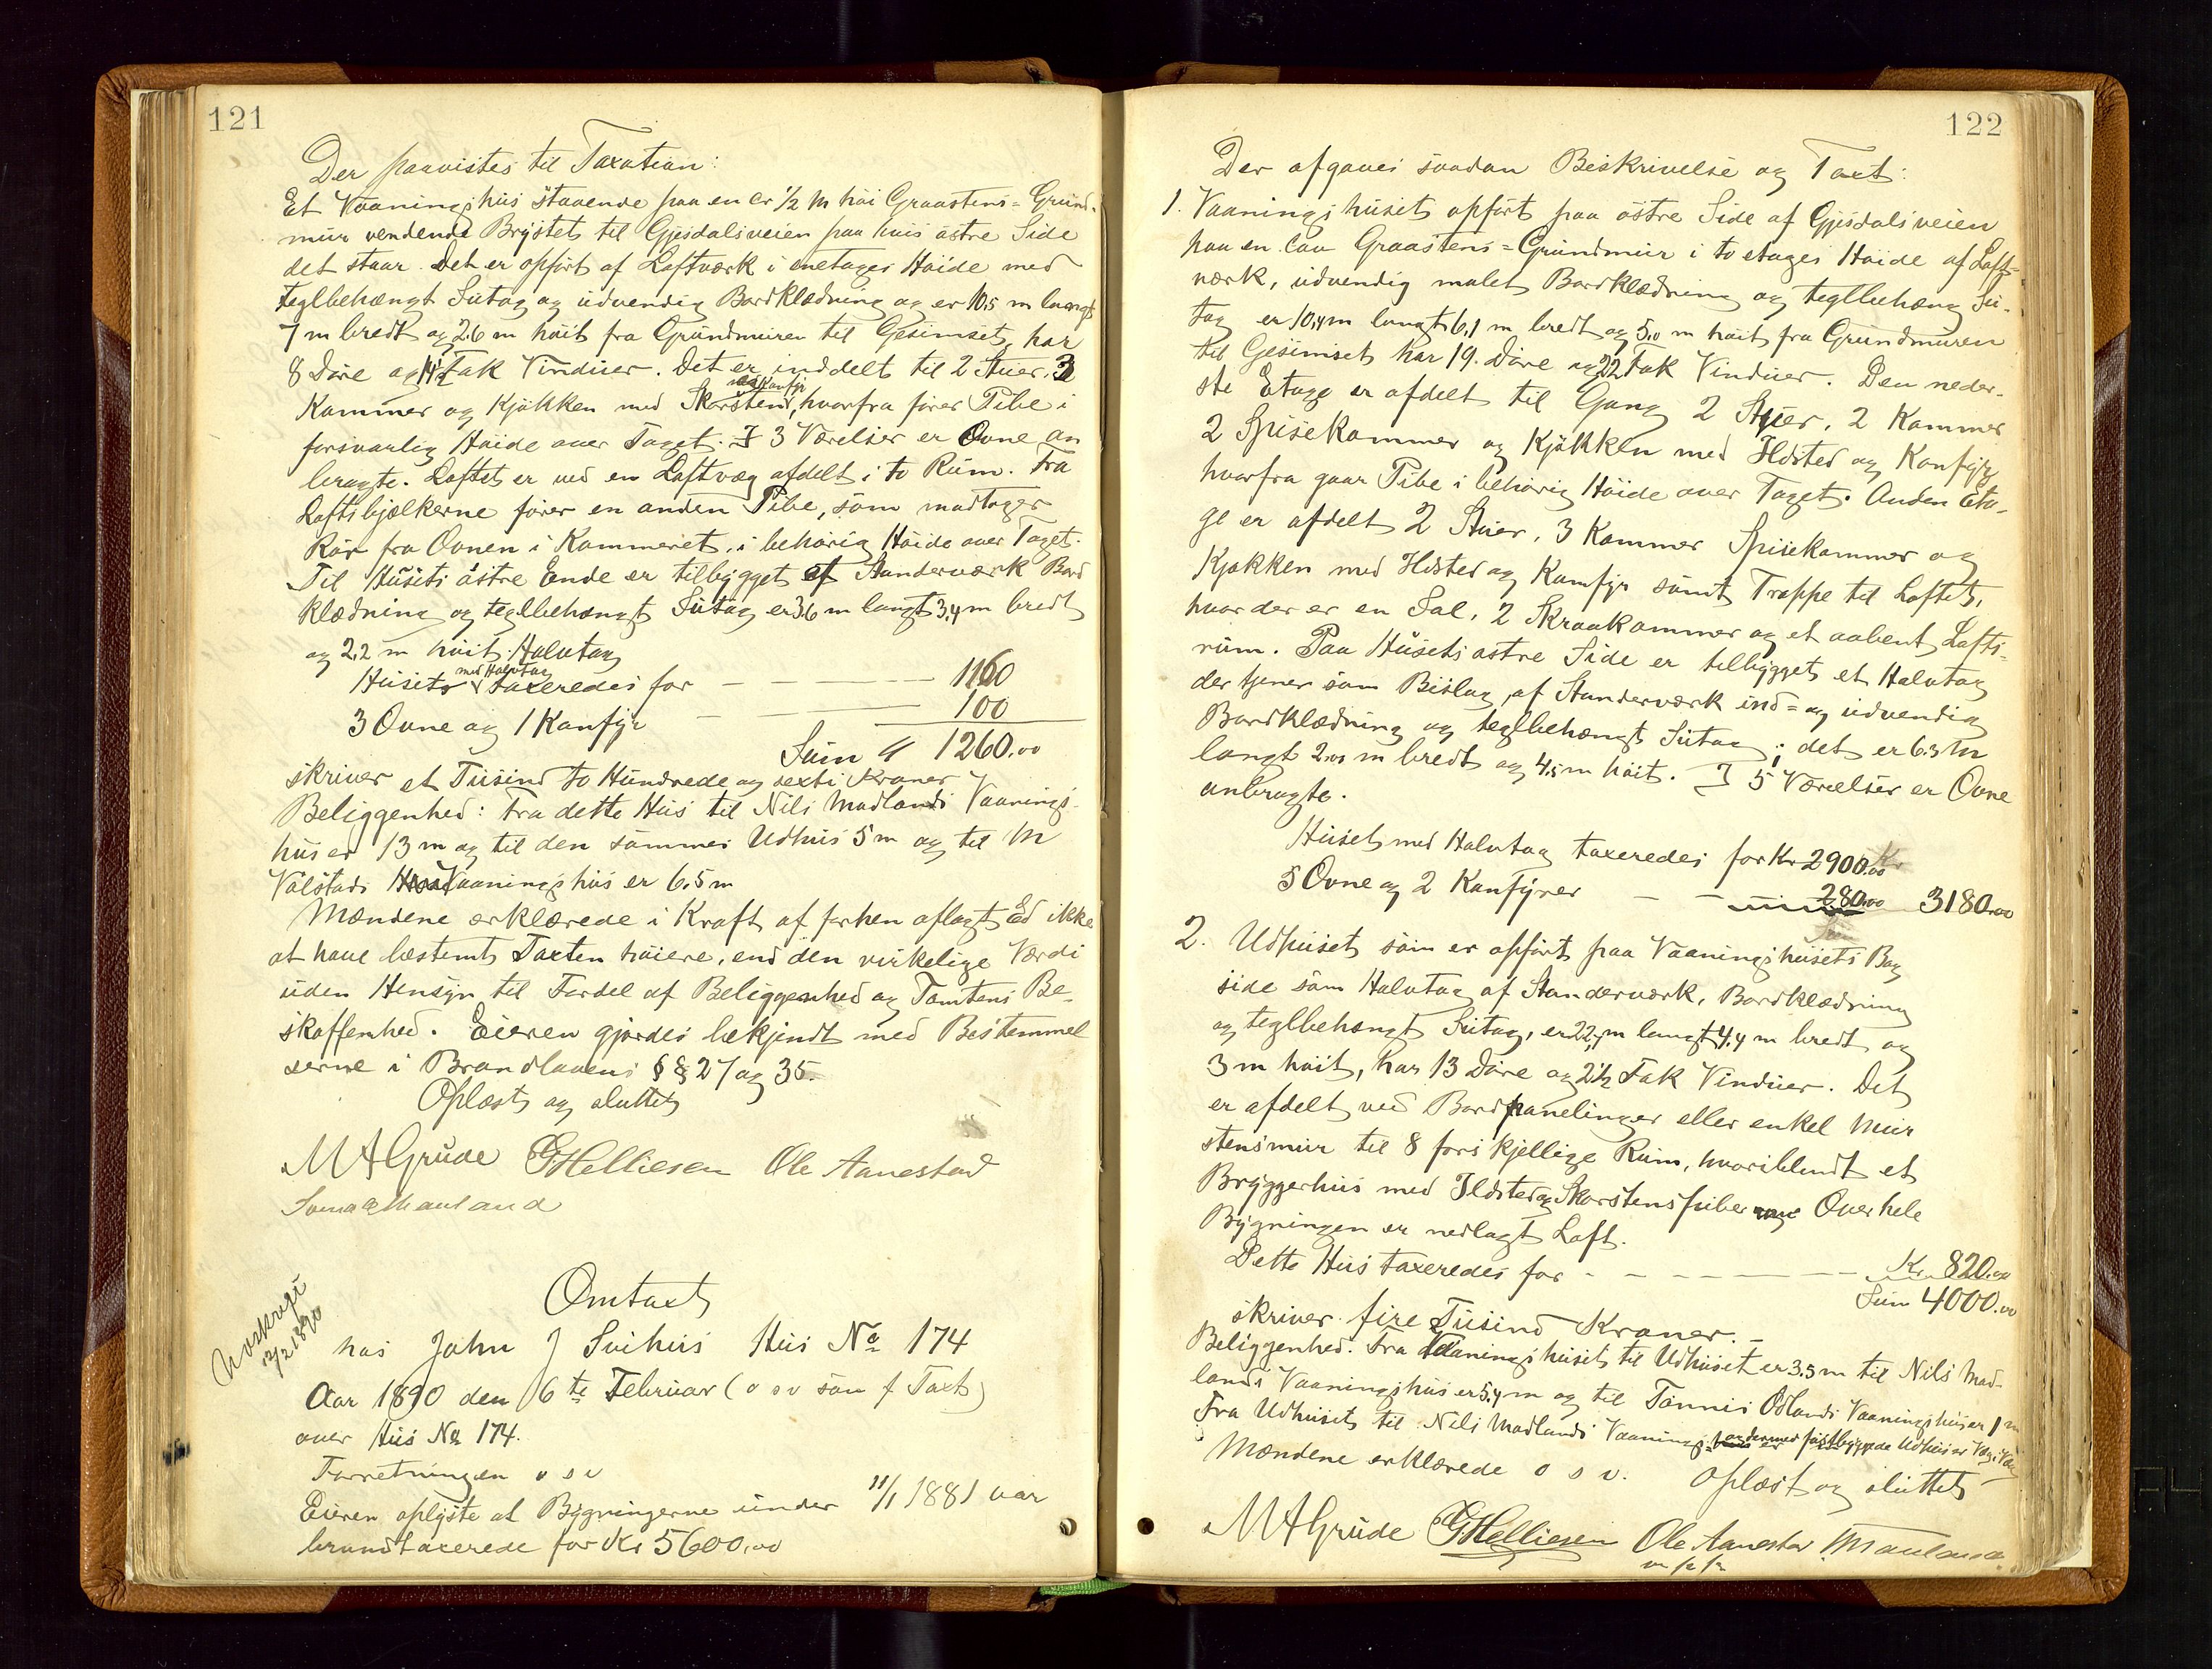 121
Der paavistes til Taxation:
Et Vaaningshus staaende paa en cr 1/2 m høi Graastens=Grund-
mur vendende Brystet til Gjesdalsveien paa hvis østre Side
det staar. Det er opført af Laftværk i enetages Høide med
teglbehængt Sutag og udvendig Bordklædning og er 10,5 m langt
7 m bredt og 2,6 m høit fra Grundmuren til Gesimset, har
8 Døre og 14 1/2 Fak Vinduer. Det er inddelt til 2 Stuer, 3
Kammer og Kjøkken med Skorsten med Komfyr, hvorfra fører Pibe i
forsvarlig Høide over Taget. I 3 Værelser er Ovne an
bragte. Loftet er ved en Loftvæg afdelt i to Rum. Fra
Loftsbjælkerne fører en anden Pibe, som modtager
Rør fra Ovnen i Kammeret, i behørig Høide over Taget.
Til Husets østre Ende er tilbygget af Standerværk Bord
klædning og teglbehængt Sutag, er 3,6 m langt 3,4 m bredt
og 2,2 m høit. Halvtag
Huset med Halvtag taxeredes for — 1160
3 Ovne og 1 Komfyr — 100
Sum 1260.00
skriver et Tusind to Hundrede og sexti Kroner
Beliggenhed: Fra dette Hus til Nils Madlands Vaanings-
hus er 13 m og til den sammes Udhus 5 m og til M
Vølstads Vaaningshus er 6,5 m
Mændene erklærede i Kraft af forhen aflagt Ed ikke
at have bestemt Taxten høiere, end den virkelige Værdi
uden Hensyn til Fordel af Beliggenhed og Tomtens Be-
skaffenhed. Eieren gjordes bekjendt med Bestemmel
serne i Brandlovens §§ 27 og 35.
Oplæst og sluttet
M A Grude G Helliesen Ole Aanestad
Omtaxt
12/2 1890
hos John J Svihus Hus No 174
Aar 1890 den 6te Februar (o s v som f Taxt)
over Hus No 174.
Forretningen o s v
Eieren oplyste at Bygningerne under 11/1 1881 var
brandtaxerede for Kr 5600,00
122
Der afgaves saadan Beskrivelse og Taxt:
1. Vaaningshuset opført paa østre Side af Gjesdalsveien
paa en lav Graastens=Grundmur i to etages Høide af Laft-
værk, udvendig malet Bordklædning og teglbehæng Su-
tag er 10,4 m langt 6,1 m bredt og 5,0 m høit fra Grundmuren
til Gesimset har 19 Døre og 22 1/2 Fak Vinduer. Den neder-
ste Etage er afdelt til Gang 2 Stuer, 2 Kammer
2 Spisekammer og Kjøkken med Ildsted og Komfyr
hvorfra gaar Pibe i behørig Høide over Taget. Anden Eta-
ge er afdelt 2 Stuer, 3 Kammer Spisekammer og
Kjøkken med Ildsted og Komfyr samt Trappe til Loftet,
hvor der er en Sal, 2 Skraakammer og et aabent Lofts-
rum. Paa Husets østre Side er tilbygget et Halvtag
der tjener som Bislag, af Standerværk ind= og udvendig
Bordklædning og teglbehængt Sutag; det er 6.3 m
langt 2.00 m bredt og 4,5 m høit. I 5 Værelser er Ovne
anbragte.
Huset med Halvtag taxeredes for Kr 2900.00
5 Ovne og 2 Komfyrer — 280.00 3180.00
2. Udhuset som er opført paa Vaaningshusets Bag
side som Halvtag af Standerværk, Bordklædning
og teglbehængt Sutag, er 22,7 m langt 4,4 m bredt og
3 m høit, har 13 Døre og 2 1/2 Fak Vinduer. Det
er afdelt ved Bordpanelinger eller enkel Mur
stensmur til 8 forskjellige Rum, hvoriblandt et
Bryggerhus med Ildsted og Skorstenspiber Over hele
Bygningen er nedlagt Loft.
Dette Hus taxeredes for — Kr 820.00
Sum 4000.00
skriver fire Tusind Kroner.
Beliggenhed. Fra Vaaningshuset til Udhuset er 3.5 m til Nils Mad-
lands Vaaningshus er 5,4 m og til Tønnes Ødlands Vaaningshus er 1 m
Fra Udhuset til Nils Madlands Vaanings
Mændene erklærede o s v. Oplæst og sluttet
M A Grude G Helliesen Ole Aanestad M Mauland
m/p/p